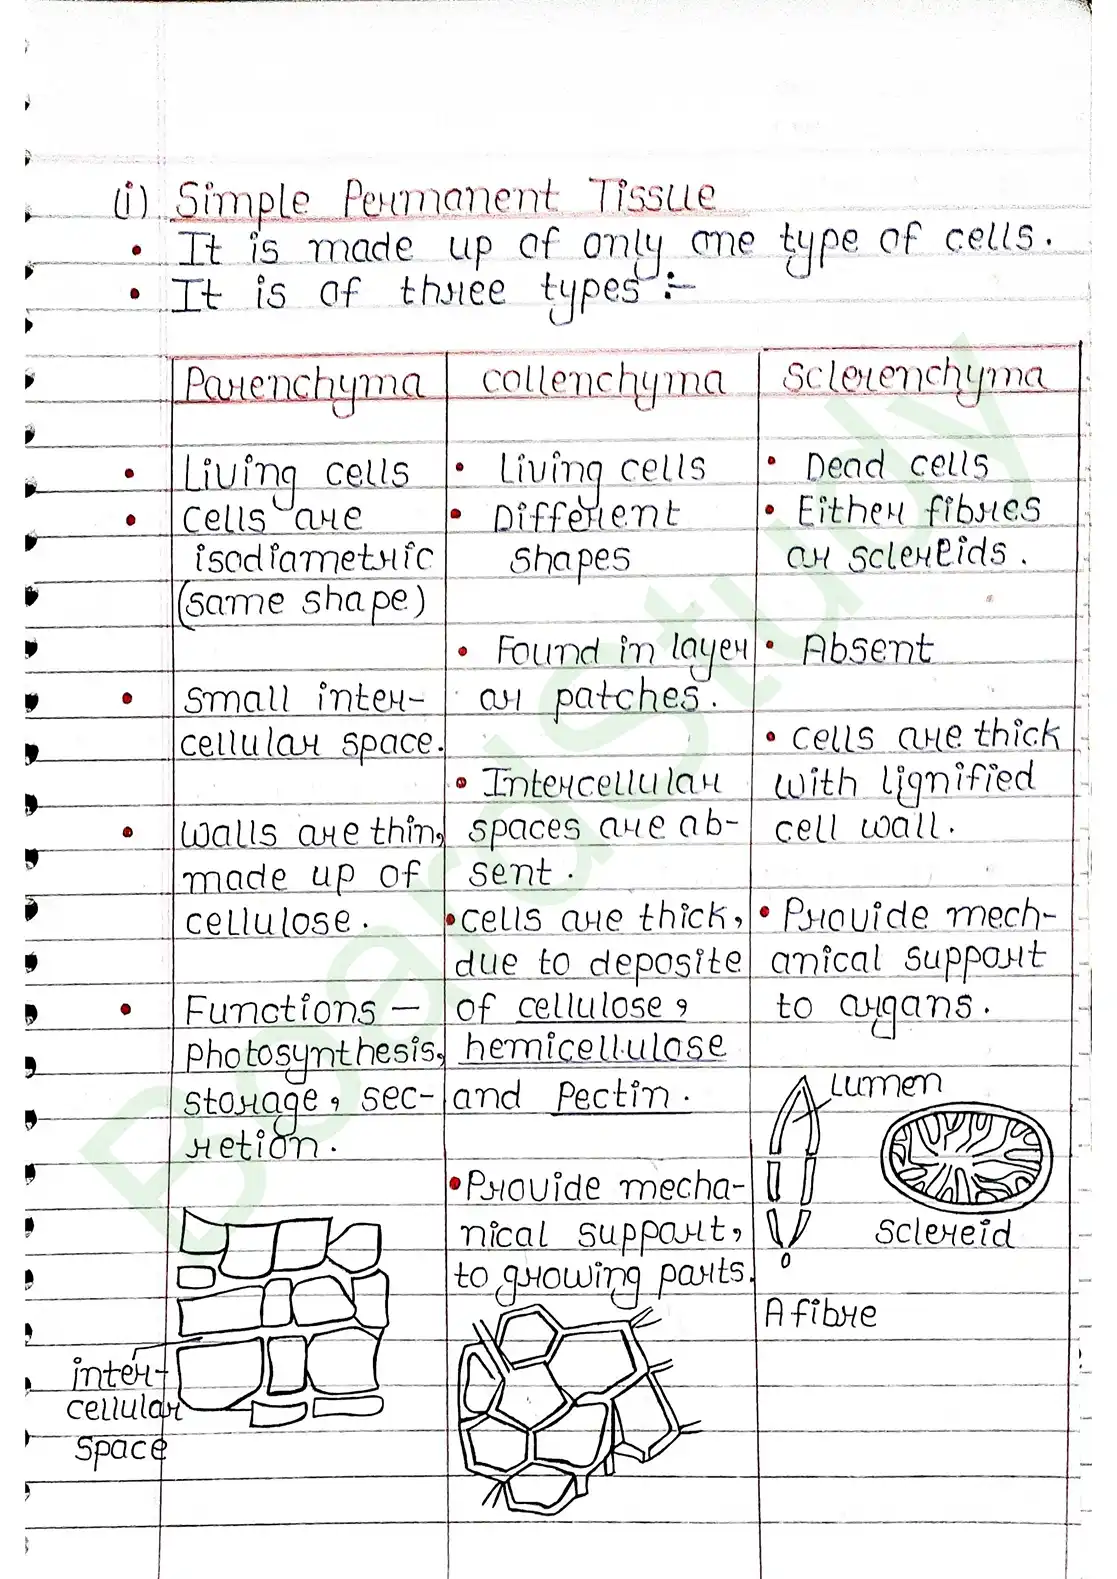 (i) Simple Permanent Tissue
• It is made up of only one type of cells.
• It is of three types :-
Parenchyma
• Living cells
• Cells are
isodiametric
(same shape)
• Small inter-
cellular space.
• Walls are thin,
made up of
cellulose.
• Functions —
photosynthesis,
storage, sec-
retion.
inter-
cellular
space
Collenchyma
• Living cells
• Different
shapes
• Found in layer
or patches.
• Intercellular
spaces are ab-
sent.
• Cells are thick,
due to deposite
of cellulose,
hemicellulose
and Pectin.
• Provide mecha-
nical support,
to growing parts.
Sclerenchyma
• Dead cells
• Either fibres
or sclereids.
• Absent
• Cells are thick
with lignified
cell wall.
• Provide mech-
anical support
to organs.
Lumen
Sclereid
A fibre
BoardStudy